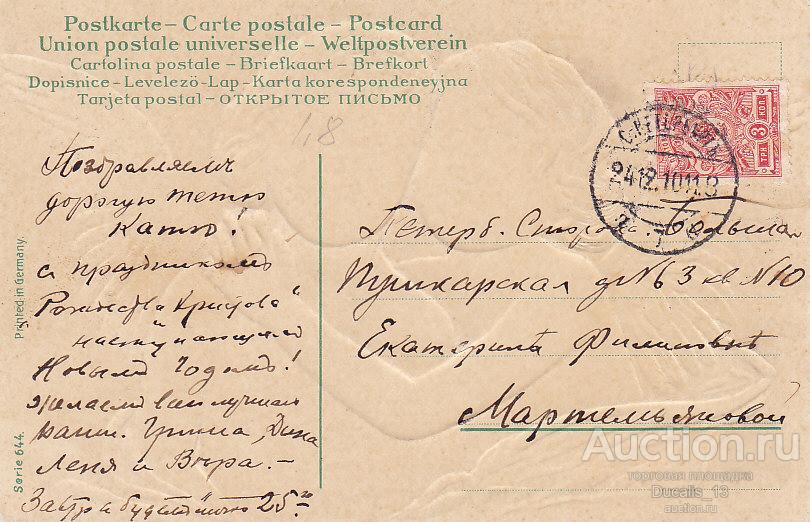 Postkarte – Carte postale – Postcard
Union postale universelle – Weltpostverein
Cartolina postale – Briefkaart – Brefkort
Dopisnice – Levelező-Lap – Karta korespondencyjna
Tarjeta postal – ОТКРЫТОЕ ПИСЬМО
1,8
Поздравляемъ
дорогую тетю
Катю!
съ праздникомъ
Рождества Христова
наступающимъ
Новымъ Годомъ!
желаемъ
Ваши. Гриша, Дина
Леня и Вѣра. –
Завтра 25го
Printed in Germany.
Serie 644.
С.ПЕТЕРБУРГЪ
24 12.10 11
3 КОП.
ТРИ
Петерб. Сторона Большая
Пушкарская д №63 кв №10
Екатеринѣ Филиповнѣ
Мартемьяновой
Auction.ru
торговая площадка
Ducalis_13
auction.ru